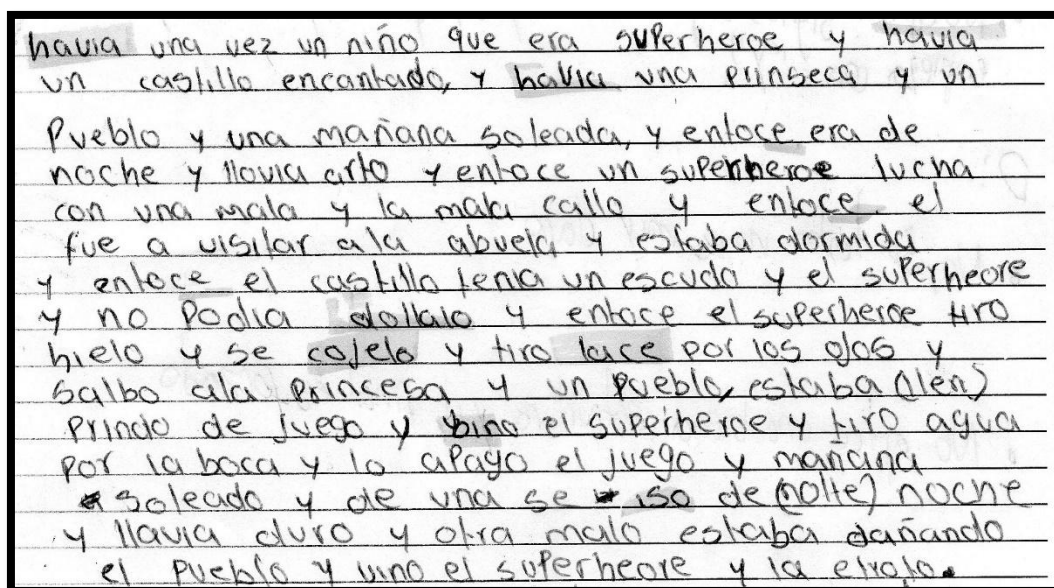 havia una vez un niño que era superheroe y havia
un castillo encantado, y havia una prinseca y un
Pueblo y una mañana soleada, y entoce era de
noche y llovia arto y entoce un superheroe lucha
con una mala y la mala callo y entoce el
fue a visitar ala abuela y estaba dormida
y entoce el castillo tenia un escudo y el superheore
y no Podia dollalo y entoce el superheroe tiro
hielo y se cojelo y tiro lace por los ojos y
salbo ala Princesa y un Pueblo, estaba (len)
Prindo de juego y bino el superheroe y tiro agua
por la boca y lo apago el juego y mañana
soleado y de una se iso de (nolte) noche
y llavia duro y otra malo estaba dañando
el Pueblo y vino el superheore y la